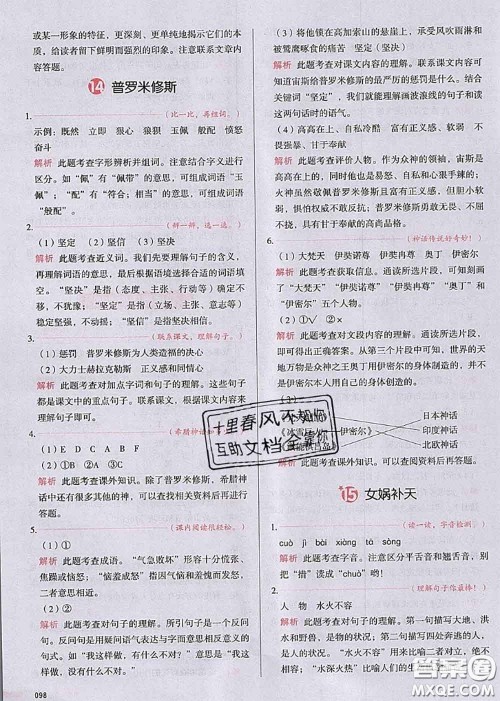 或某一形象的特点，更深刻、更单纯地揭示事物的本质，
给读者留下鲜明而强烈的印象。注意联系文章内
容答题。
14 普罗米修斯
1.
（比一比，再组词。）
示例：既然 立即 狠心 狼狈 玉佩 般配 愤怒
奋斗
解析 此题考查字形辨析并组词。注意结合字义进行
区分。如“佩”有“佩带”的意思，可组成词语“玉
佩”；“配”有“符合；相当”的意思，可组成词语
“般配”。
2.
（辨一辨，选一选。）
（1）坚定 （2）坚信 （3）坚决
解析 此题考查近义词。我们先要理解句子的含义，
再理解词语的意思，最后根据语境选择合适的词语填
空。“坚决”是指（态度、主张、行动等）确定不
移，不犹豫；“坚定”是指（立场、主张、意志等）
稳定坚强，不动摇；“坚信”是指坚决相信。
3.
（联系课文，理解句子。）
（1）惩罚 普罗米修斯为人类造福的决心
（2）大力士赫拉克勒斯 正义感和同情心
解析 此题考查对加点字词和句子的理解。这些句子
都是课文中的重点句子，联系课文，根据课文内容来
理解即可。
4.
（1）E D C A B F
（2）①B ②A ③C
解析 此题考查课外知识。除了普罗米修斯，希腊神
话中还有很多其他人物，可以查找相关资料后再进行
答题。
5.
（课内阅读很轻松。）
（1）①
解析 此题考查成语。“气急败坏”形容十分慌张、
懊丧或恼怒；“恼羞成怒”指因气恼和羞愧而发怒。
二者意思最相近。
（2）②
解析 此题考查对句子的理解。所引句子是一个反问
句。反问句是用疑问语气表达与字面意思相反的意
思。如“我这样做，有什么不对？”其意思就是“我
这样做，没有什么不对。”
098
（3）锁在高加索山的悬崖上，承受风吹雨淋和
被鹫鹰啄食的痛苦 坚定（坚决）
解析 此题考查对课文内容的理解。联系课文内容可
知道宙斯给普罗米修斯的最严厉的惩罚是什么。结合
关键词“坚定”，我们就能理解画波浪线的句子和读
这两句话时的语气。
（4）高高在上、自私冷酷 富有正义感、软弱 不
畏强暴、甘于奉献
解析 此题考查评价人物。作为众神的领袖，宙斯是
高高在上的，同时他的自私、自恶和心狠手辣的；
火神虽然敬佩普罗米修斯，有正义感和同情心，但胆小
软弱，惧怕权威，不敢反抗；普罗米修斯勇敢无畏、不
畏强暴，有甘于奉献的高尚品格。
6.
（神话传说好奇妙！）
（1）大梵天 伊奘诺尊 伊奘冉尊 奥丁 伊密尔
解析 此题考查获取信息。通读所选片段，可找到
“大梵天”“伊奘诺尊”“伊奘冉尊”“奥丁”和
“伊密尔”五个人物。
（2）②③
解析 此题考查对文段内容的理解。通读所选片段，
即可得出正确答案。从第三个片段中可知，世界的天
地万物是众神之王奥丁用巨人伊密尔的身体创造的，
并不是他用自己的身体创造的。
日本神话
印度神话
北欧神话
解析 此题考查课外知识。可以查阅资料后再答题。
15 女娲补天
1.
（读一读，字音检测。）
cuò jì bài xiàng tā sòng
解析 此题考查字音。注意区分平舌音和翘舌音，别
把“措”读成“chuò”了哟！
2.
（理解句子你最棒！）
人 物 水火不容
解析 此题考查对句子的理解。第一句描写大地、洪
水和野火的变化。第二句描写四处奔逃的人
是人。“水火不容”一般用来比喻二者对立，绝不相
容；“水深火热”比喻人们的生
十里春风不如你
互助文档会靠你
答案圈
MXQE.COM